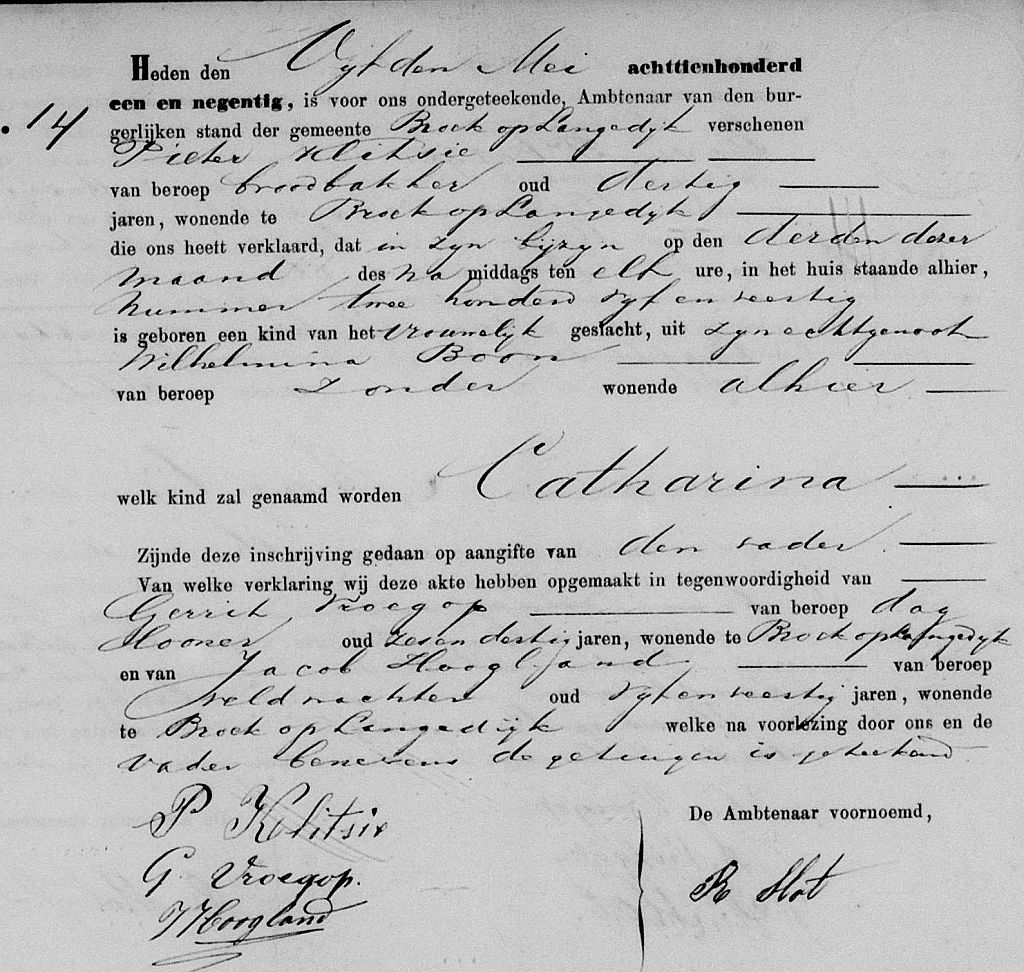 Heden den Vyfden Mei achttienhonderd
een en negentig, is voor ons ondergeteekende, Ambtenaar van den bur-
14
gerlijken stand der gemeente Broek op Langedyk verschenen
Pieter Klitsie
van beroep broodbakker oud dertig
jaren, wonende te Broek op Langedyk
die ons heeft verklaard, dat in zyn byzyn op den derden dezer
maand des na middags ten elf ure, in het huis staande alhier,
nummer twee honderd vyf en veertig
is geboren een kind van het vrouwelyk geslacht, uit zyn echtgenoot
Wilhelmina Boon
van beroep zonder wonende alhier
welk kind zal genaamd worden Catharina
Zijnde deze inschrijving gedaan op aangifte van den vader
Van welke verklaring wij deze akte hebben opgemaakt in tegenwoordigheid van
Gerrit Vroegop van beroep dag
looner oud zes en dertig jaren, wonende te Broek op Langedyk
en van Jacob Hoogland van beroep
veldwachter oud vyf en veertig jaren, wonende
te Broek op Langedijk welke na voorlezing door ons en de
vader benevens de getuigen is geteekend
P Klitsie
De Ambtenaar voornoemd,
G. Vroegop.
R Slot
J Hoogland